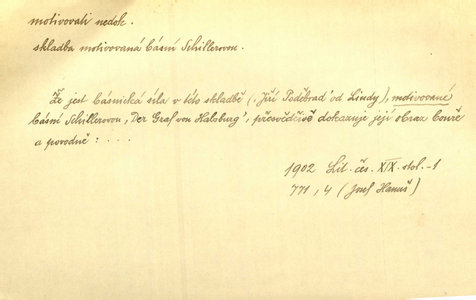 motivovati nedok.
skladba motivovaná básní Schillerovou.
Že jest básnická síla v této skladbě (‚Jiří Poděbrad' od Lindy), motivované
básní Schillerovou ‚Der Graf von Habsburg', přesvědčivě dokazuje její obraz bouře
a povodně: . . .
1902 Lit. čes. XIX. stol.-1
771, 4 (Josef Hanuš)